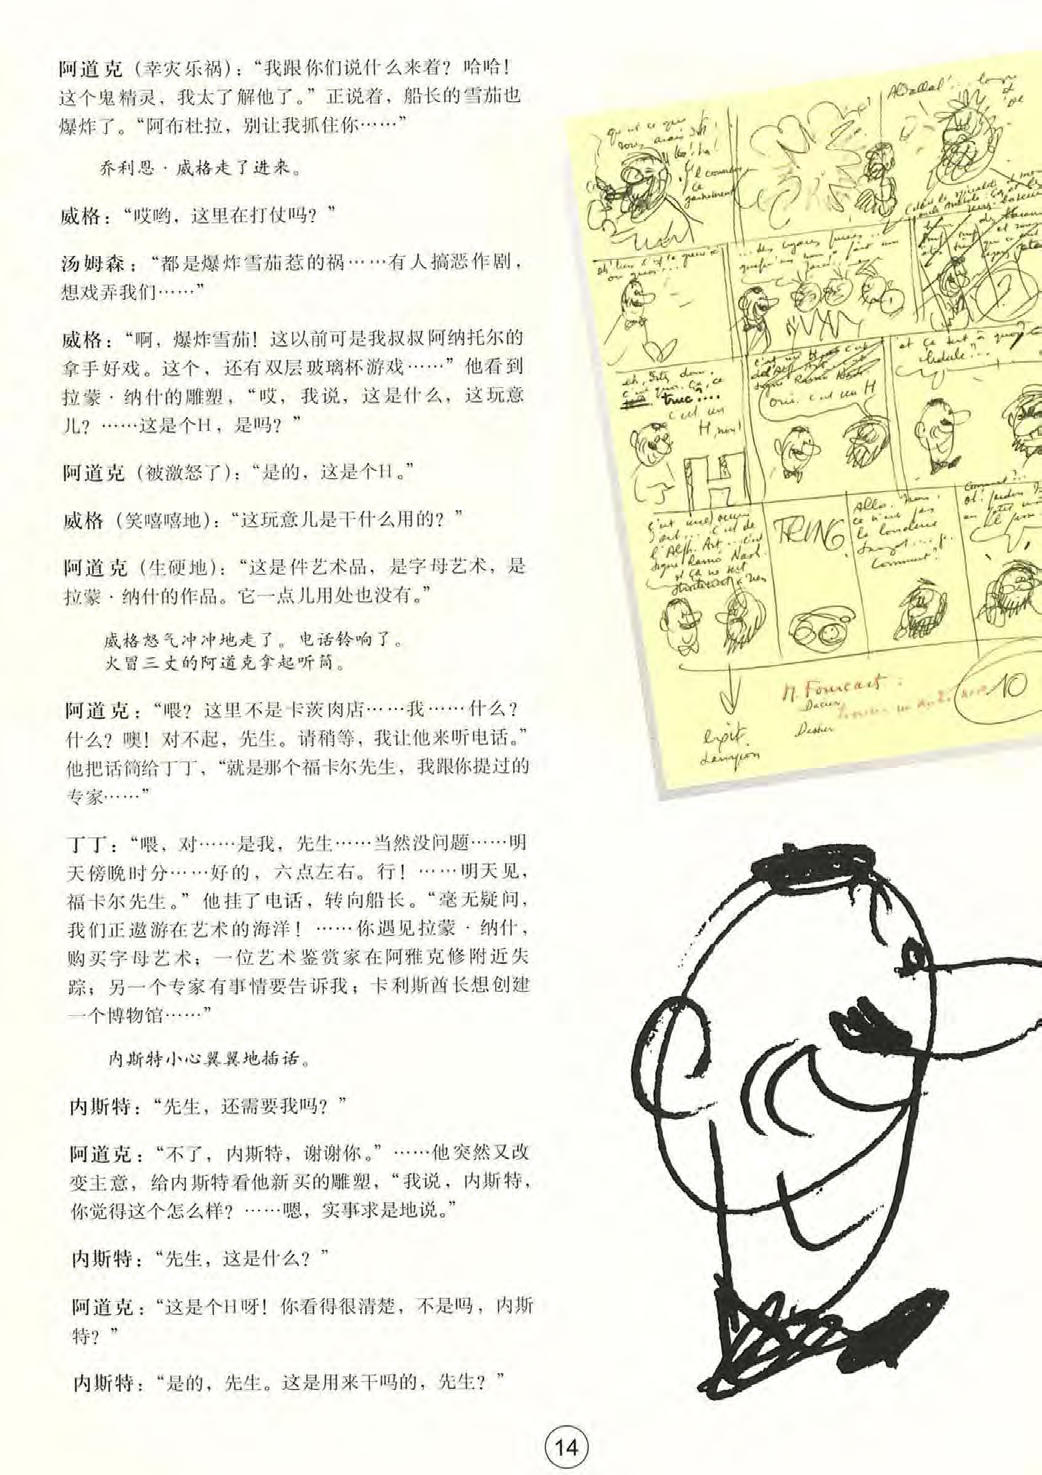 阿道克（幸灾乐祸）：“我跟你们说什么来着？哈哈！
这个鬼精灵，我太了解他了。”正说着，船长的雪茄也
爆炸了。“阿布杜拉，别让我抓住你……”
乔利恩·威格走了进来。
威格：“哎哟，这里在打仗吗？”
汤姆森：“都是爆炸雪茄惹的祸……有人搞恶作剧，
想戏弄我们……”
威格：“啊，爆炸雪茄！这以前可是我叔叔阿纳托尔的
拿手好戏。这个，还有双层玻璃杯游戏……”他看到
拉蒙·纳什的雕塑，“哎，我说，这是什么，这玩意
儿？……这是个H，是吗？”
阿道克（被激怒了）：“是的，这是个H。”
威格（笑嘻嘻地）：“这玩意儿是干什么用的？”
阿道克（生硬地）：“这是件艺术品，是字母艺术，是
拉蒙·纳什的作品。它一点儿用处也没有。”
威格怒气冲冲地走了。电话铃响了。
火冒三丈的阿道克拿起听筒。
阿道克：“喂？这里不是卡茨肉店……我……什么？
什么？噢！对不起，先生。请稍等，我让他来听电话。”
他把话筒给丁丁，“就是那个福卡尔先生，我跟你提过的
专家……”
丁丁：“喂，对……是我，先生……当然没问题……明
天傍晚时分……好的，六点左右。行！……明天见，
福卡尔先生。”他挂了电话，转向船长。“毫无疑问，
我们正遨游在艺术的海洋！……你遇见拉蒙·纳什，
购买字母艺术；一位艺术鉴赏家在阿雅克修附近失
踪；另一个专家有事情要告诉我；卡利斯酋长想创建
一个博物馆……”
内斯特小心翼翼地插话。
内斯特：“先生，还需要我吗？”
阿道克：“不了，内斯特，谢谢你。”……他突然又改
变主意，给内斯特看他新买的雕塑，“我说，内斯特，
你觉得这个怎么样？……嗯，实事求是地说。”
内斯特：“先生，这是什么？”
阿道克：“这是个H呀！你看得很清楚，不是吗，内斯
特？”
内斯特：“是的，先生。这是用来干吗的，先生？”
c'est un
H, non!
oui. c'est un H
H
TRING
M. Fourcart :
10
14